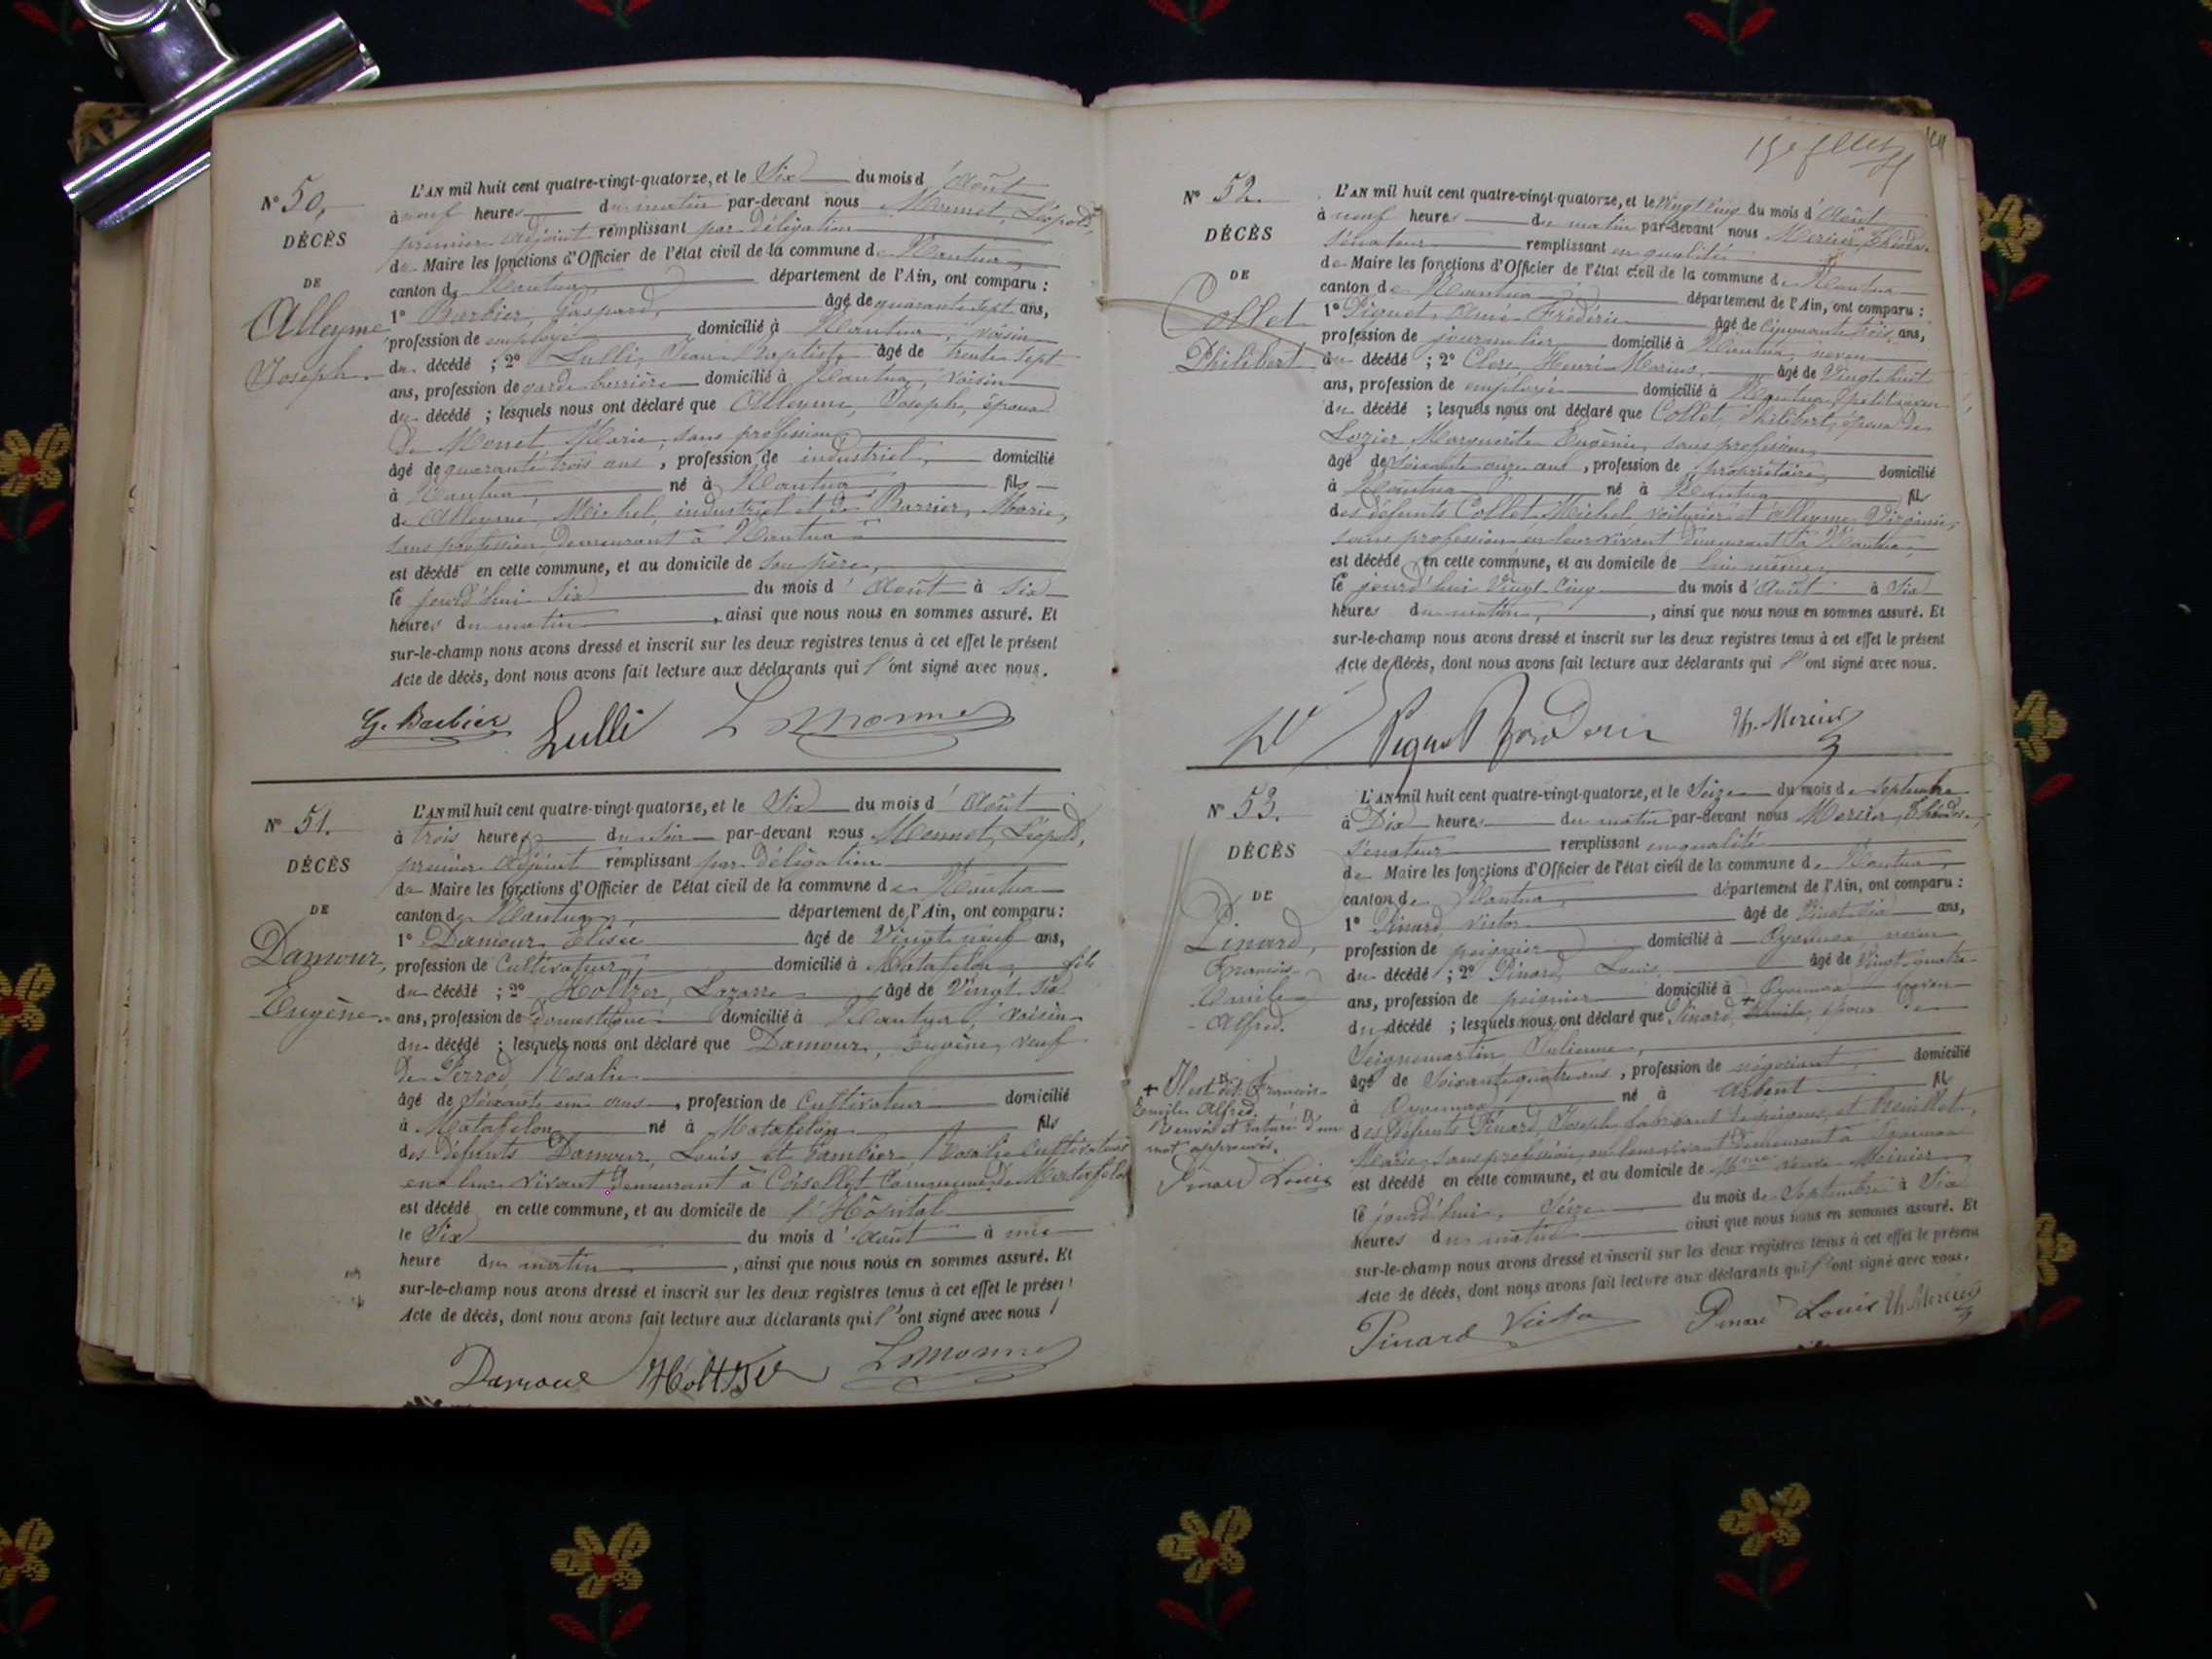 N° 50,
DÉCÈS
DE
Alleyme
Joseph.
L'AN mil huit cent quatre-vingt-quatorze, et le Six du mois d'Août
à neuf heures du matin par-devant nous Monnet, Léopold,
premier adjoint remplissant par délégation
de Maire les fonctions d'Officier de l'état civil de la commune de Nantua
canton de Nantua, département de l'Ain, ont comparu :
1° Barbier, Gaspard, âgé de quarante sept ans,
profession de employé domicilié à Nantua, voisin
du décédé ; 2° Lulli, Jean Baptiste, âgé de trente sept
ans, profession de garde barrière domicilié à Nantua, voisin
du décédé ; lesquels nous ont déclaré que Alleyme, Joseph, époux
de Monet Marie, sans profession
âgé de quarante trois ans, profession de industriel, domicilié
à Nantua, né à Nantua, fils
de Alleyme, Michel, industriel et de Barrier, Marie,
sans profession, demeurant à Nantua
est décédé en cette commune, et au domicile de son père,
le jourd'hui Six du mois d'Août à Six
heures du matin, ainsi que nous nous en sommes assuré. Et
sur-le-champ nous avons dressé et inscrit sur les deux registres tenus à cet effet le présent
Acte de décès, dont nous avons fait lecture aux déclarants qui l'ont signé avec nous.
G. Barbier Lulli L Monnet
N° 51.
DÉCÈS
DE
Damour,
Eugène.
L'AN mil huit cent quatre-vingt-quatorze, et le Six du mois d'Août
à trois heures du soir par-devant nous Monnet, Léopold,
premier adjoint remplissant par délégation
de Maire les fonctions d'Officier de l'état civil de la commune de Nantua
canton de Nantua, département de l'Ain, ont comparu :
1° Damour, Elisée âgé de Vingt neuf ans,
profession de Cultivateur domicilié à Matafelon, fils
du décédé ; 2° Holtzer, Lazarre âgé de Vingt Six
ans, profession de domestique domicilié à Nantua, voisin
du décédé ; lesquels nous ont déclaré que Damour, Eugène, veuf
de Perrod, Rosalie
âgé de Soixante un ans, profession de Cultivateur domicilié
à Matafelon né à Matafelon fils
des défunts Damour, Louis et Rosalie Cultivateurs
en leur vivant demeurant à Coiselet Commune de Matafelon
est décédé en cette commune, et au domicile de l'Hôpital
le Six du mois d'Août à une
heure du matin, ainsi que nous nous en sommes assuré. Et
sur-le-champ nous avons dressé et inscrit sur les deux registres tenus à cet effet le présent
Acte de décès, dont nous avons fait lecture aux déclarants qui l'ont signé avec nous
Damour Holtzer L Monnet
N° 52.
DÉCÈS
DE
Collet
Philibert
L'AN mil huit cent quatre-vingt-quatorze, et le Vingt Cinq du mois d'Août
à neuf heures du matin par-devant nous Mercier, Théodore
Sénateur remplissant en qualité
de Maire les fonctions d'Officier de l'état civil de la commune de Nantua
canton de Nantua département de l'Ain, ont comparu :
1° Piquet, Aimé Frédéric âgé de Cinquante trois ans,
profession de journalier domicilié à Nantua, neveu
du décédé ; 2° Clerc, Henri Marius, âgé de Vingt huit
ans, profession de employé domicilié à Nantua, petit neveu
du décédé ; lesquels nous ont déclaré que Collet, Philibert, époux de
Lozier Marguerite Eugénie, sans profession,
âgé de Soixante onze ans, profession de propriétaire, domicilié
à Nantua né à Nantua fils
des défunts Collet Michel, voiturier et Alleyme, Virginie,
sans profession en leur vivant demeurant à Nantua,
est décédé en cette commune, et au domicile de lui même,
le jourd'hui Vingt-Cinq du mois d'Août à Six
heures du matin, ainsi que nous nous en sommes assuré. Et
sur-le-champ nous avons dressé et inscrit sur les deux registres tenus à cet effet le présent
Acte de décès, dont nous avons fait lecture aux déclarants qui l'ont signé avec nous.
Piquet Th. Mercier
N° 53.
DÉCÈS
DE
Pinard,
François-
Emile
Alfred.
+ Il est dit François-
Emile Alfred.
renvoi et rature d'un
mot approuvés.
Pinard Louis
L'AN mil huit cent quatre-vingt-quatorze, et le Seize du mois de Septembre
à Dix heures du matin par-devant nous Mercier, Théodore,
Sénateur remplissant en qualité
de Maire les fonctions d'Officier de l'état civil de la commune de Nantua,
canton de Nantua, département de l'Ain, ont comparu :
1° Pinard, Victor âgé de Vingt Six ans,
profession de peignier domicilié à Oyonnax neveu
du décédé ; 2° Pinard, Louis, âgé de Vingt quatre
ans, profession de peignier domicilié à Oyonnax neveu
du décédé ; lesquels nous ont déclaré que Pinard, + Emile, époux de
Seignemartin Julienne,
âgé de Soixante quatre ans, profession de négociant domicilié
à Oyonnax né à Arbent fils
des défunts Pinard, Joseph fabricant de peignes, et
Marie, sans profession, en leur vivant demeurant à Oyonnax
est décédé en cette commune, et au domicile de Mme veuve Meinier
le jourd'hui, Seize du mois de Septembre à Six
heures du matin ainsi que nous nous en sommes assuré. Et
sur-le-champ nous avons dressé et inscrit sur les deux registres tenus à cet effet le présent
Acte de décès, dont nous avons fait lecture aux déclarants qui l'ont signé avec nous.
Pinard Victor Pinard Louis Th. Mercier